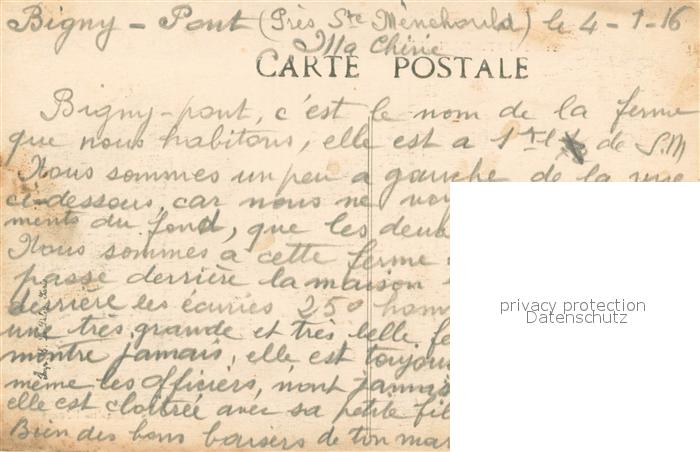 Bigny - Pont (Près Ste Ménehould) le 4-1-16
Ma Chérie
CARTE POSTALE
Bigny-pont, c'est le nom de la ferme
que nous habitons, elle est a 1 de S.M
Nous sommes un peu a gauche de la vue
ci-dessous, car nous ne
ments du fond, que les deux
Nous sommes a cette ferme
passe derrière la maison
derrière les écuries 250
une très grande et très belle
montre jamais, elle est toujou
privacy protection
Datenschutz
même les officiers, n'ont jamais
elle est cloitrée avec sa petite fil
Bien des bons baisers de ton mar